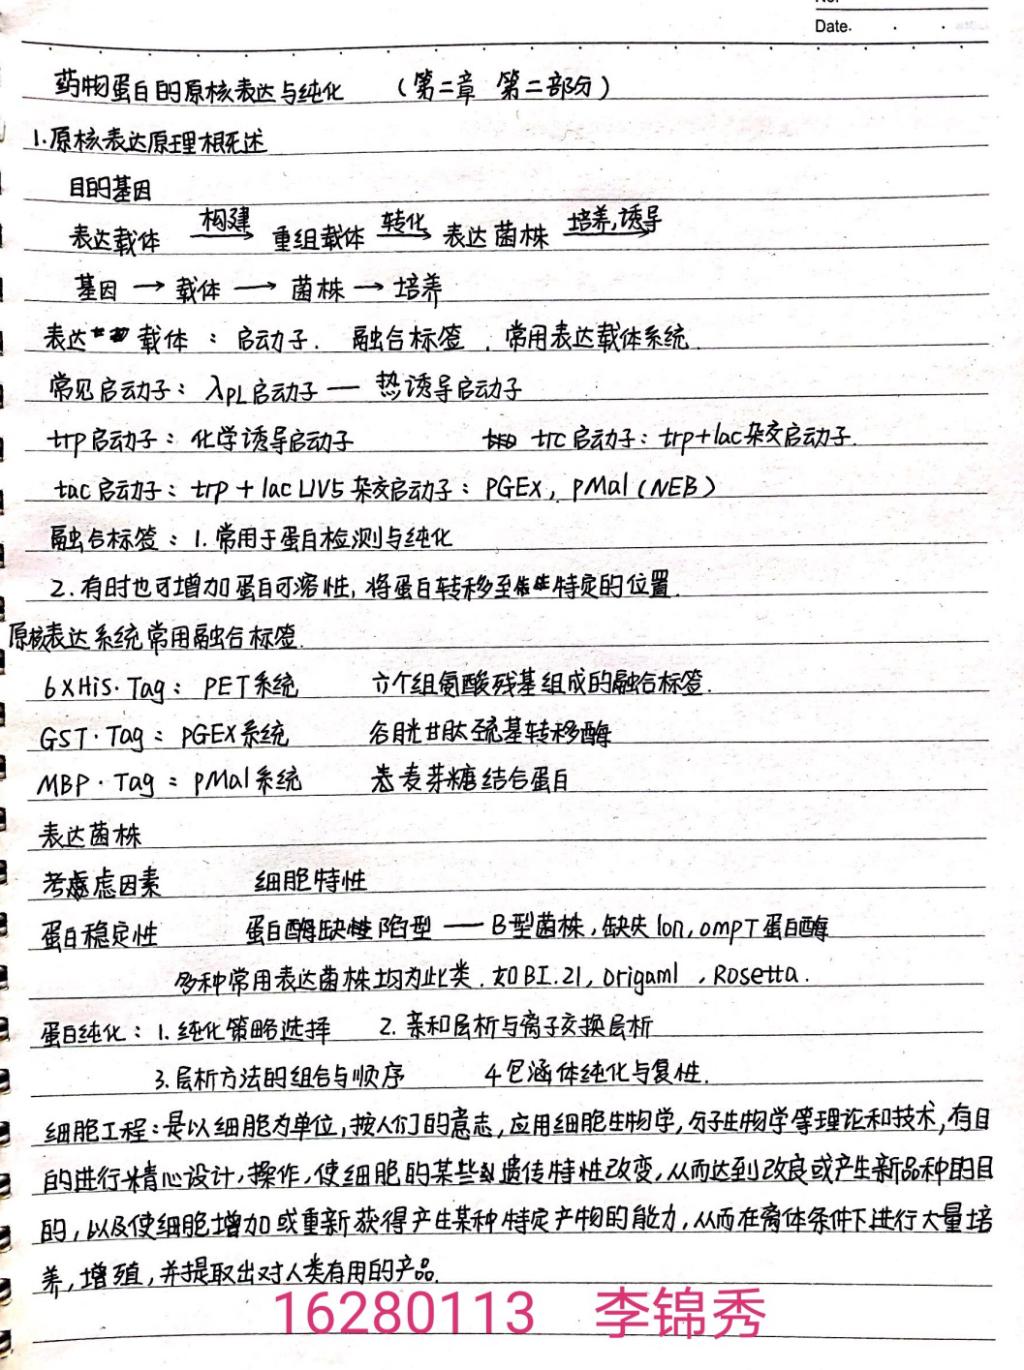 Date.
药物蛋白的原核表达与纯化 (第二章 第二部分)
1.原核表达原理概述
目的基因
表达载体 构建→ 重组载体 转化→ 表达菌株 培养,诱导→
基因 → 载体 → 菌株 → 培养
表达载体:启动子. 融合标签. 常用表达载体系统.
常见启动子:λPL启动子 — 热诱导启动子
trp启动子:化学诱导启动子 trc启动子:trp+lac杂交启动子.
tac启动子:trp + lac UV5 杂交启动子:PGEX, pMal (NEB)
融合标签:1.常用于蛋白检测与纯化
2.有时也可增加蛋白可溶性,将蛋白转移至特定的位置.
原核表达系统常用融合标签.
6XHiS·Tag:PET系统 六个组氨酸残基组成的融合标签.
GST·Tag:pGEX系统 谷胱甘肽巯基转移酶
MBP·Tag:pMal系统 麦芽糖结合蛋白
表达菌株
考虑因素 细胞特性
蛋白稳定性 蛋白酶缺陷型 — B型菌株,缺失lon,ompT蛋白酶
多种常用表达菌株均为此类.如BI.21, origaml, Rosetta.
蛋白纯化:1.纯化策略选择 2.亲和层析与离子交换层析
3.层析方法的组合与顺序 4包涵体纯化与复性.
细胞工程:是以细胞为单位,按人们的意志,应用细胞生物学,分子生物学等理论和技术,有目
的进行精心设计,操作,使细胞的某些遗传特性改变,从而达到改良或产生新品种的目
的,以及使细胞增加或重新获得产生某种特定产物的能力,从而在离体条件下进行大量培
养,增殖,并提取出对人类有用的产品.
16280113 李锦秀